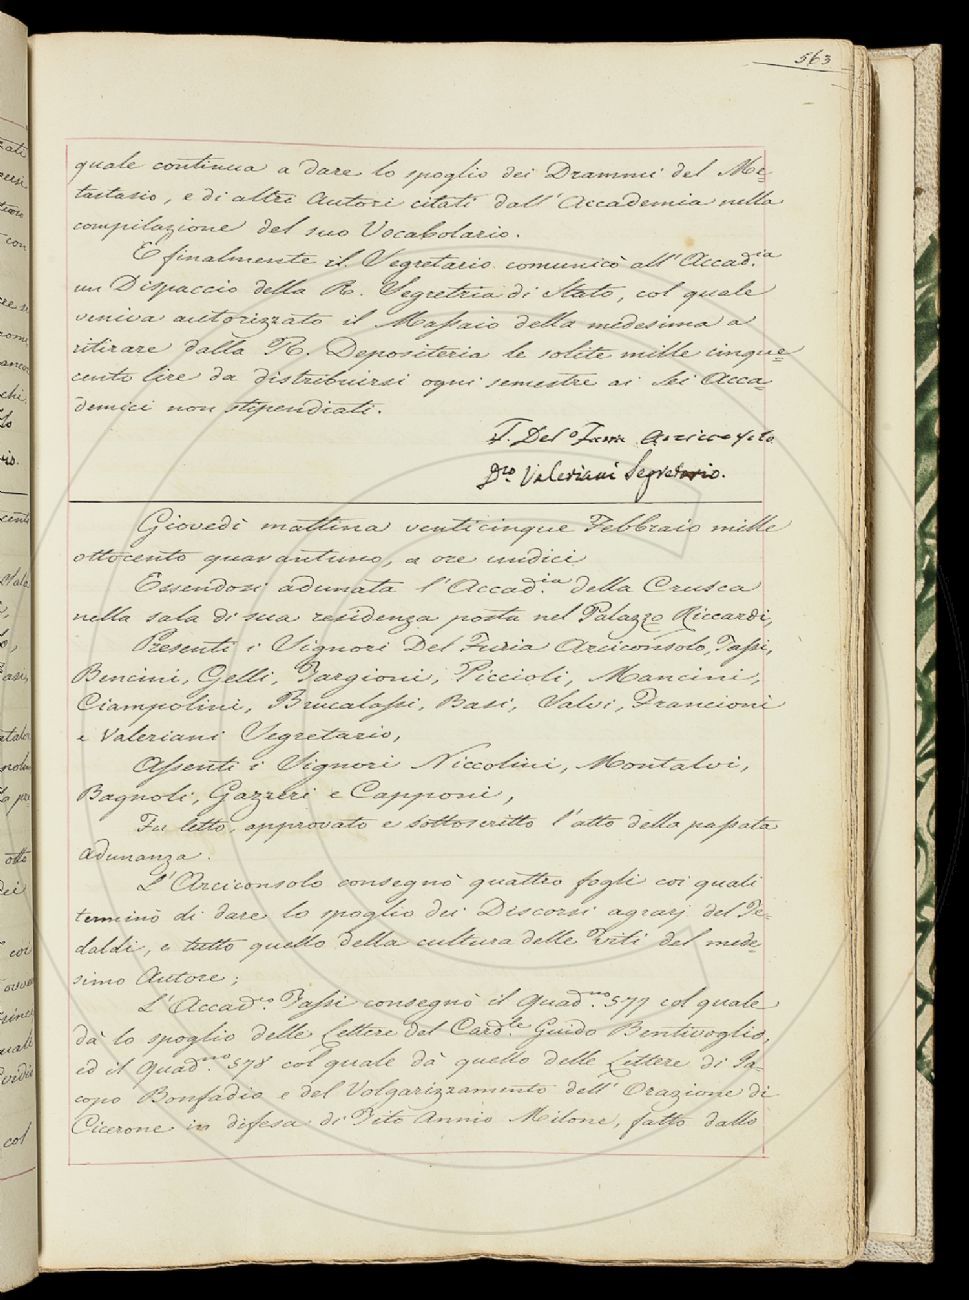 563
quale continua a dare lo spoglio dei Drammi del Me=
tastasio, e di altri Autori citati dall'Accademia nella
compilazione del suo Vocabolario.
E finalmente il Segretario comunicò all'Accad.ia
un Dispaccio della R. Segretria di Stato, col quale
veniva autorizzato il Massaio della medesima a
ritirare dalla R. Depositeria le solite mille cinque=
cento lire da distribuirsi ogni semestre ai sei Acca=
demici non stipendiati.
F. Del Furia Arciconsolo
Dro. Valeriani Segretario.
Giovedì mattina venticinque Febbraio mille
ottocento quarantuno, a ore undici
Essendosi adunata l'Accad.ia della Crusca
nella sala di sua residenza posta nel Palazzo Riccardi,
Presenti i Signori Del Furia Arciconsolo, Tassi,
Bencini, Gelli, Targioni, Piccioli, Mancini,
Ciampolini, Brucalassi, Basi, Salvi, Francioni
e Valeriani Segretario,
Assenti i Signori Niccolini, Montalvi,
Bagnoli, Gazzeri e Capponi,
Fu letto, approvato e sottoscritto l'atto della passata
adunanza.
L'Arciconsolo consegnò quattro fogli coi quali
terminò di dare lo spoglio dei Discorsi agrarj del Te=
daldi, e tutto quello della cultura delle Viti del mede=
simo Autore;
L'Accad.co Tassi consegnò il quad.no 577 col quale
dà lo spoglio delle Lettere del Card.le Guido Bentivoglio,
ed il quad.no 578 col quale dà quello delle Lettere di Ja=
copo Bonfadio e del Volgarizzamento dell'Orazione di
Cicerone in difesa di Tito Annio Milone, fatto dallo